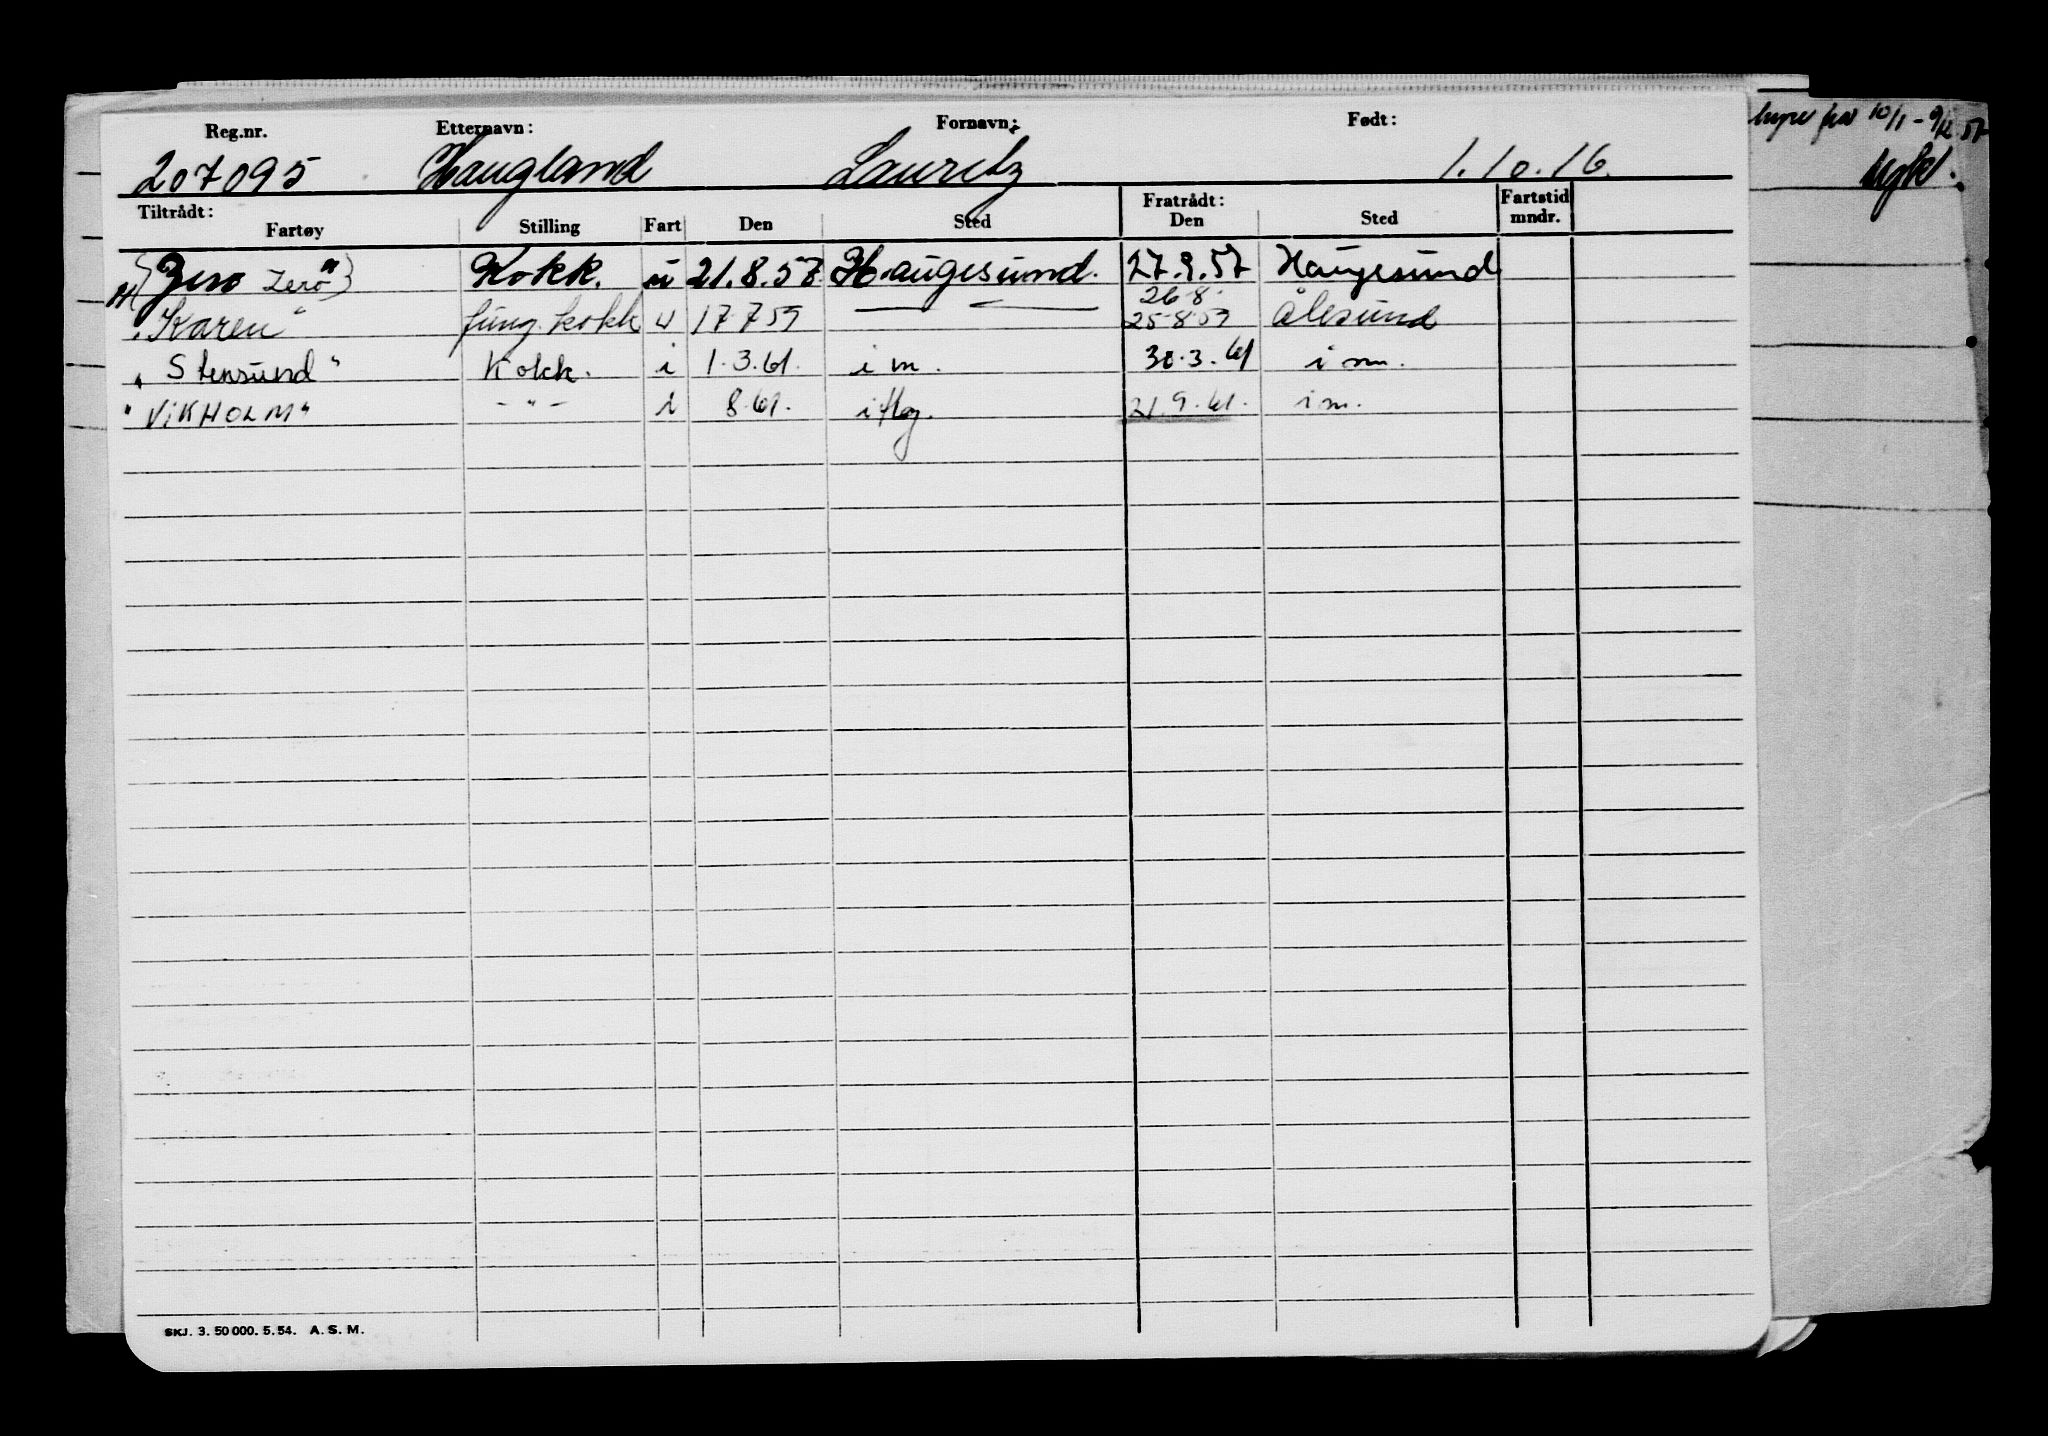 hyre fra 10/11 - 9/12 57
Reg.nr. Etternavn: Fornavn: Født:
207095 Haugland Lauritz 1.10.16.
Tiltrådt: Fratrådt: Fartstid
Fartøy Stilling Fart Den Sted Den Sted mndr.
{Zero "Zero"} Kokk. u 21.8.57 Haugesund. 27.9.57 Haugesund
26.8.
"Karen" fung. kokk u 17 7 59 — " — 25.8.59 Ålesund
"Stensund" Kokk. i 1.3.61. i m. 30.3.61 i m.
"VIKHOLM" - " - i 8.61. i flg. 21.9.61. i m.
SKJ. 3. 50 000. 5. 54. A. S. M.